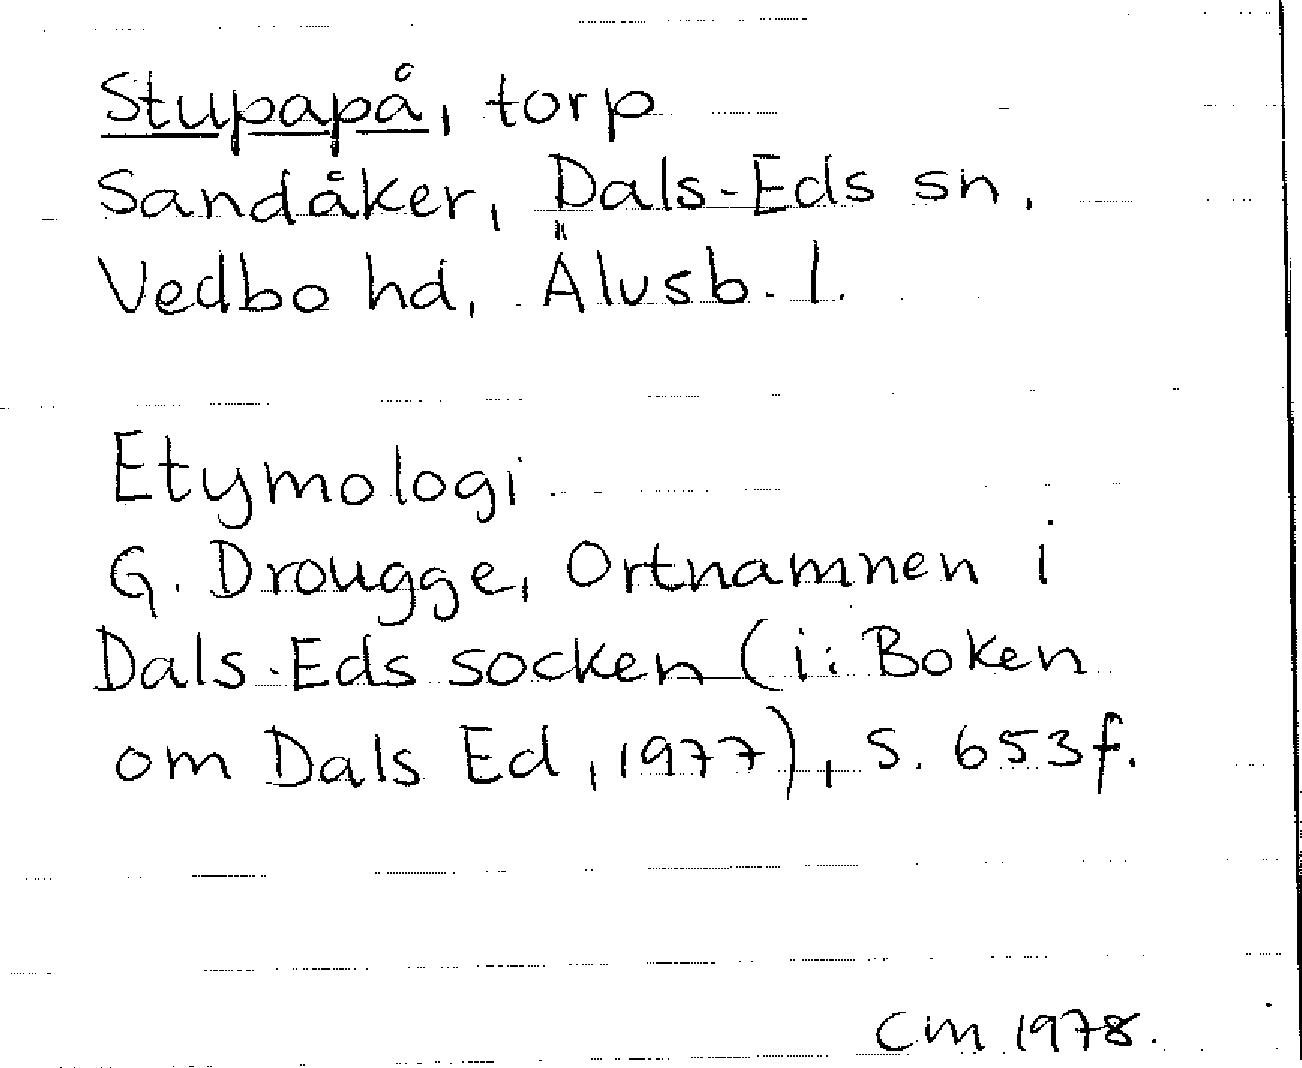 Stupapå, torp
Sandåker, Dals-Eds sn,
Vedbo hd, Älvsb. l.
Etymologi
G. Drougge, Ortnamnen i
Dals-Eds socken (i: Boken
om Dals Ed, 1977), s. 653f.
CM 1978.